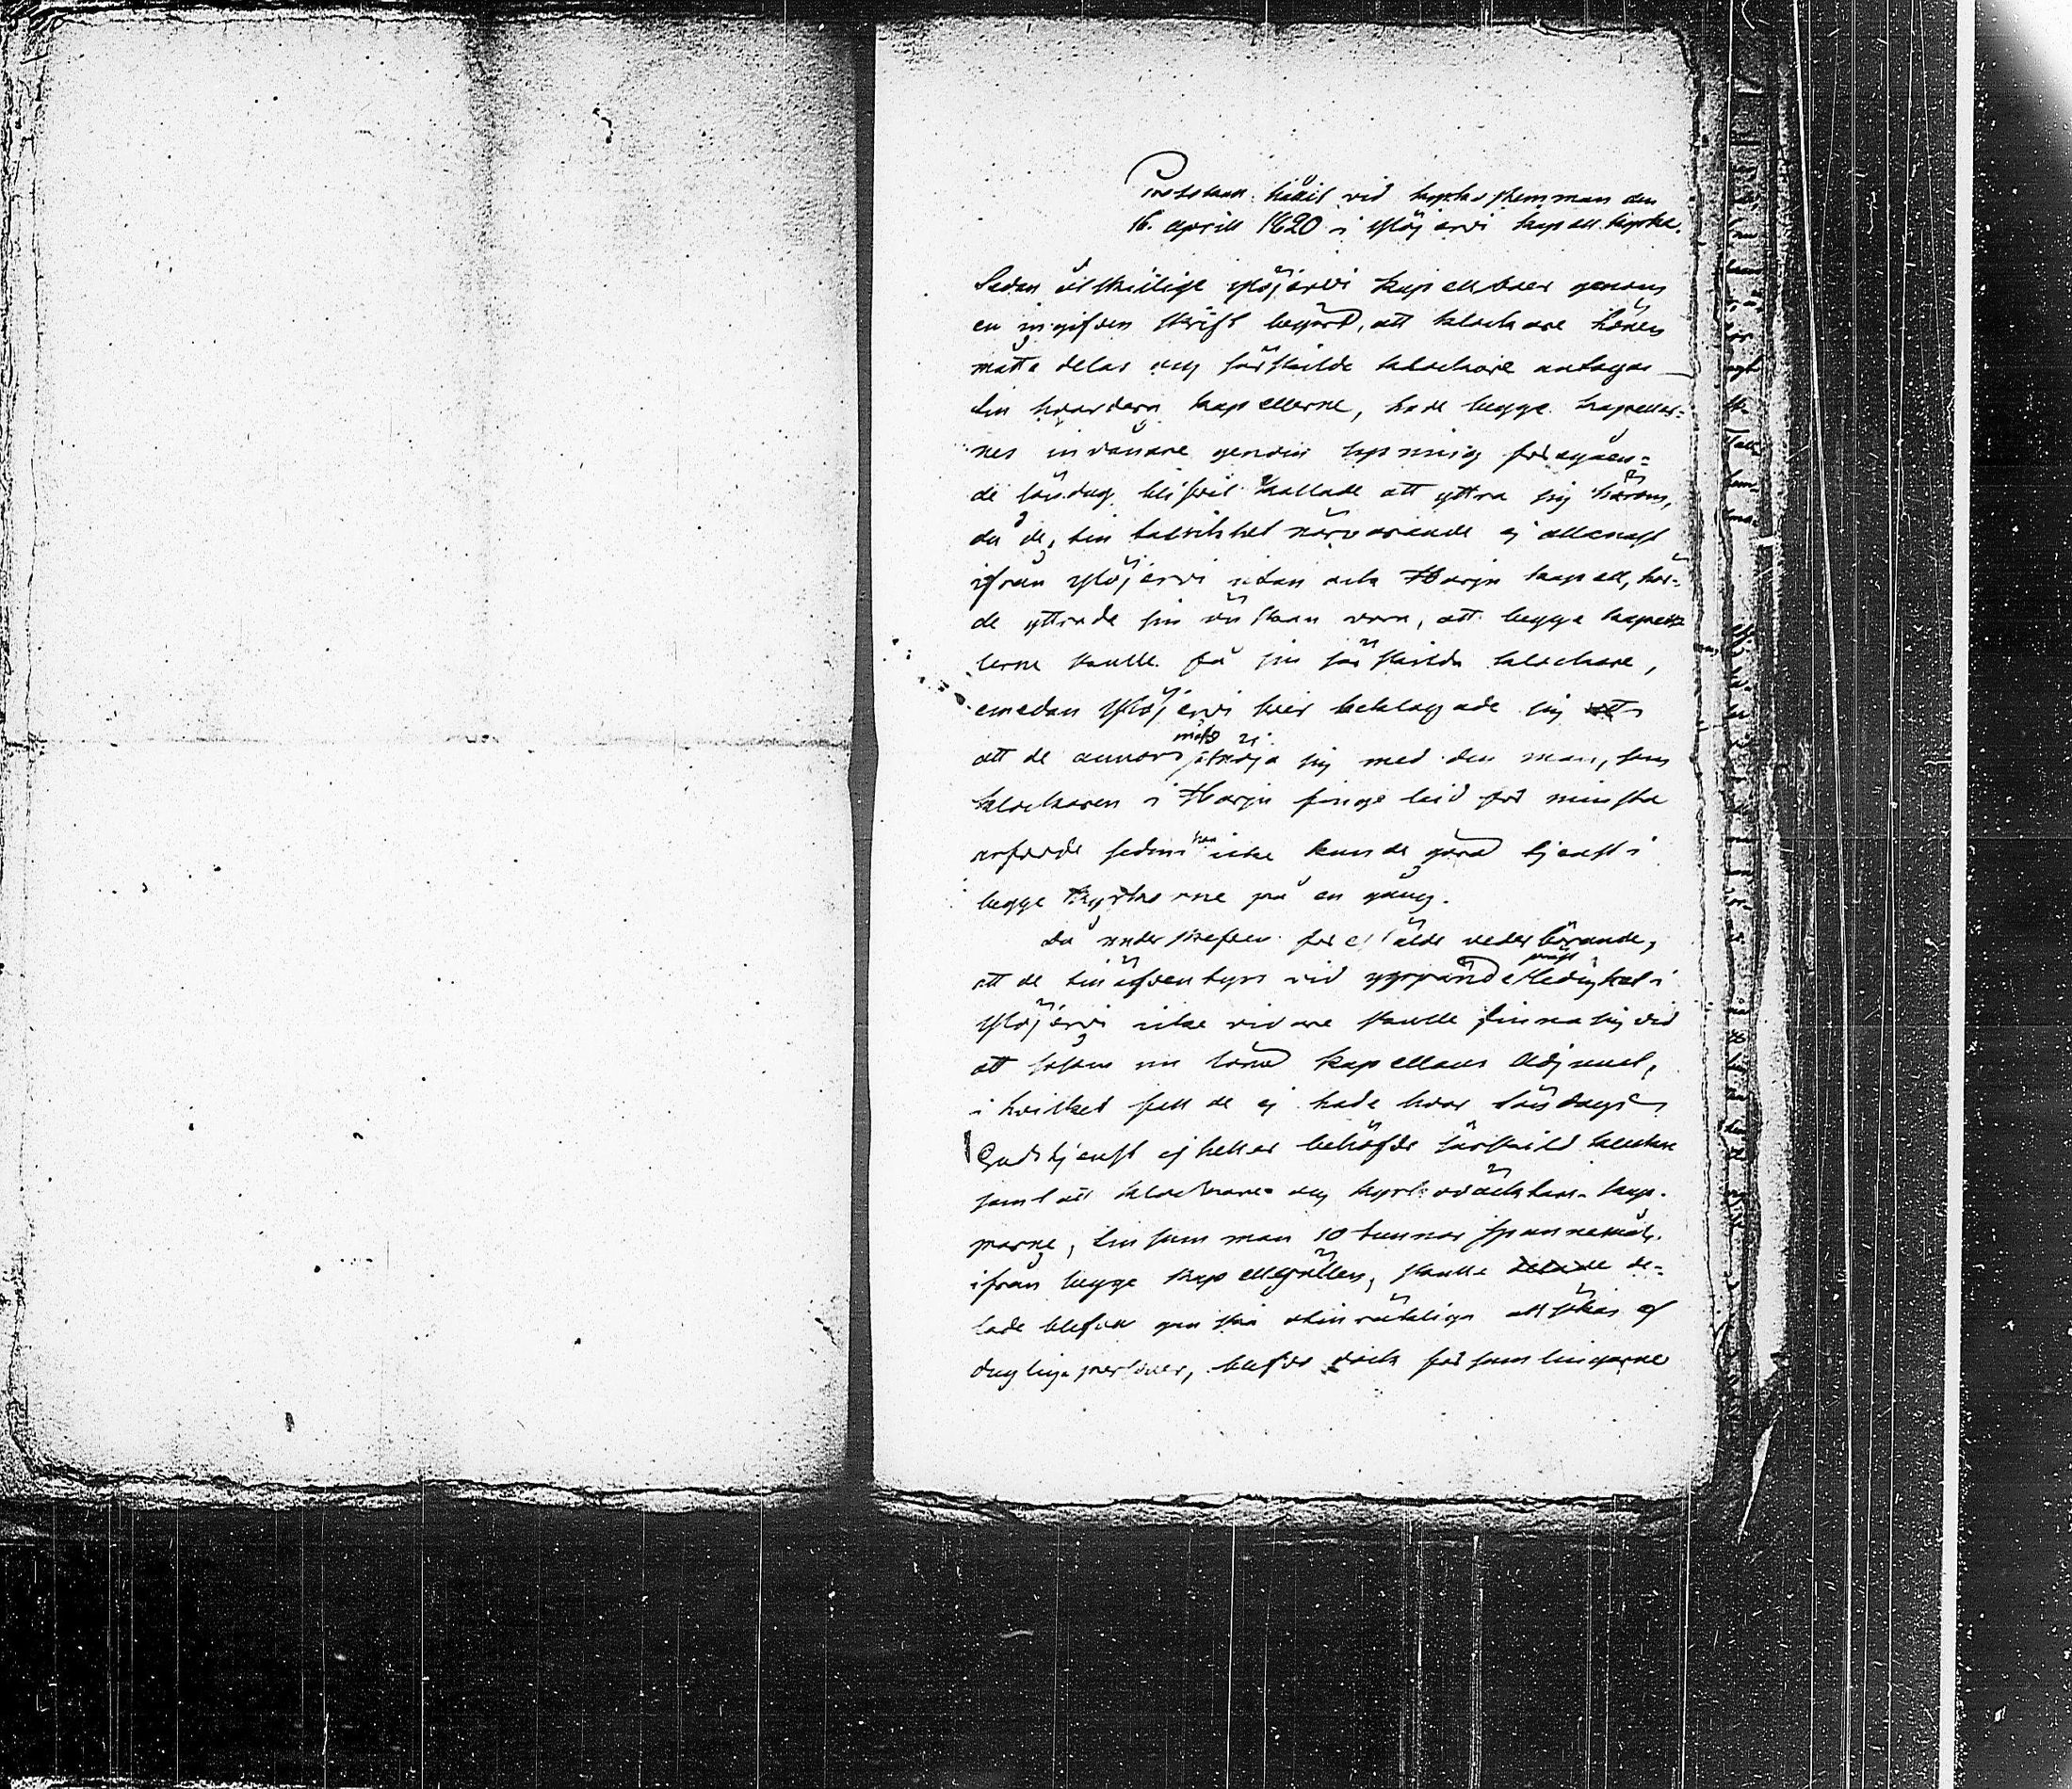 Protokoll hållit vid kyrkostemman den
16. April 1820 i Ylöjervi kapell kyrka.
Sedan åtskillige Ylöjervi kapellboer genom
en ingifven skrift begärd, att klockare lönen
måtte delas och särskilde klockare antagas
till hvardera kapellerne, hade begge kapeller=
nes invånare genom lysning föregåen=
de söndag blifvit kallade att yttra sig härom,
då de, till talrikhet närvarande ej allenast
ifrån Ylöjervi utan ock Harju kapell, här=
de yttrade sin önskan vara, att begge kapel=
lerne skulle få sin särskilda klockare,
emedan Ylöjervi boer beklagade sig
att de annars måste åtnöja sig med den man, som
klockaren i Harju finge leid för minsta
värde sedan han icke kunde göra tjenst i
begge kyrkorne på en gång.
Då underskrefven föreställde vederbörande,
att de till äfventyrs vid yppande prest ledighet i
Ylöjervi icke vidare skulle finna sig vid
att såsom nu löna Kapellans Adjunct,
i hvilket fall de ej hade hvar söndags
Gudstjenst ej heller behöfde särskild klockare
samt att klockare och kyrkoväcktare kap=
parne, tillsamman 10 tunnor spannemål
ifrån begge kapellgällen, skulle de=
lade blifva ganska otillräckliga att sökas af
dugliga personer, blefvo dock församlingarne